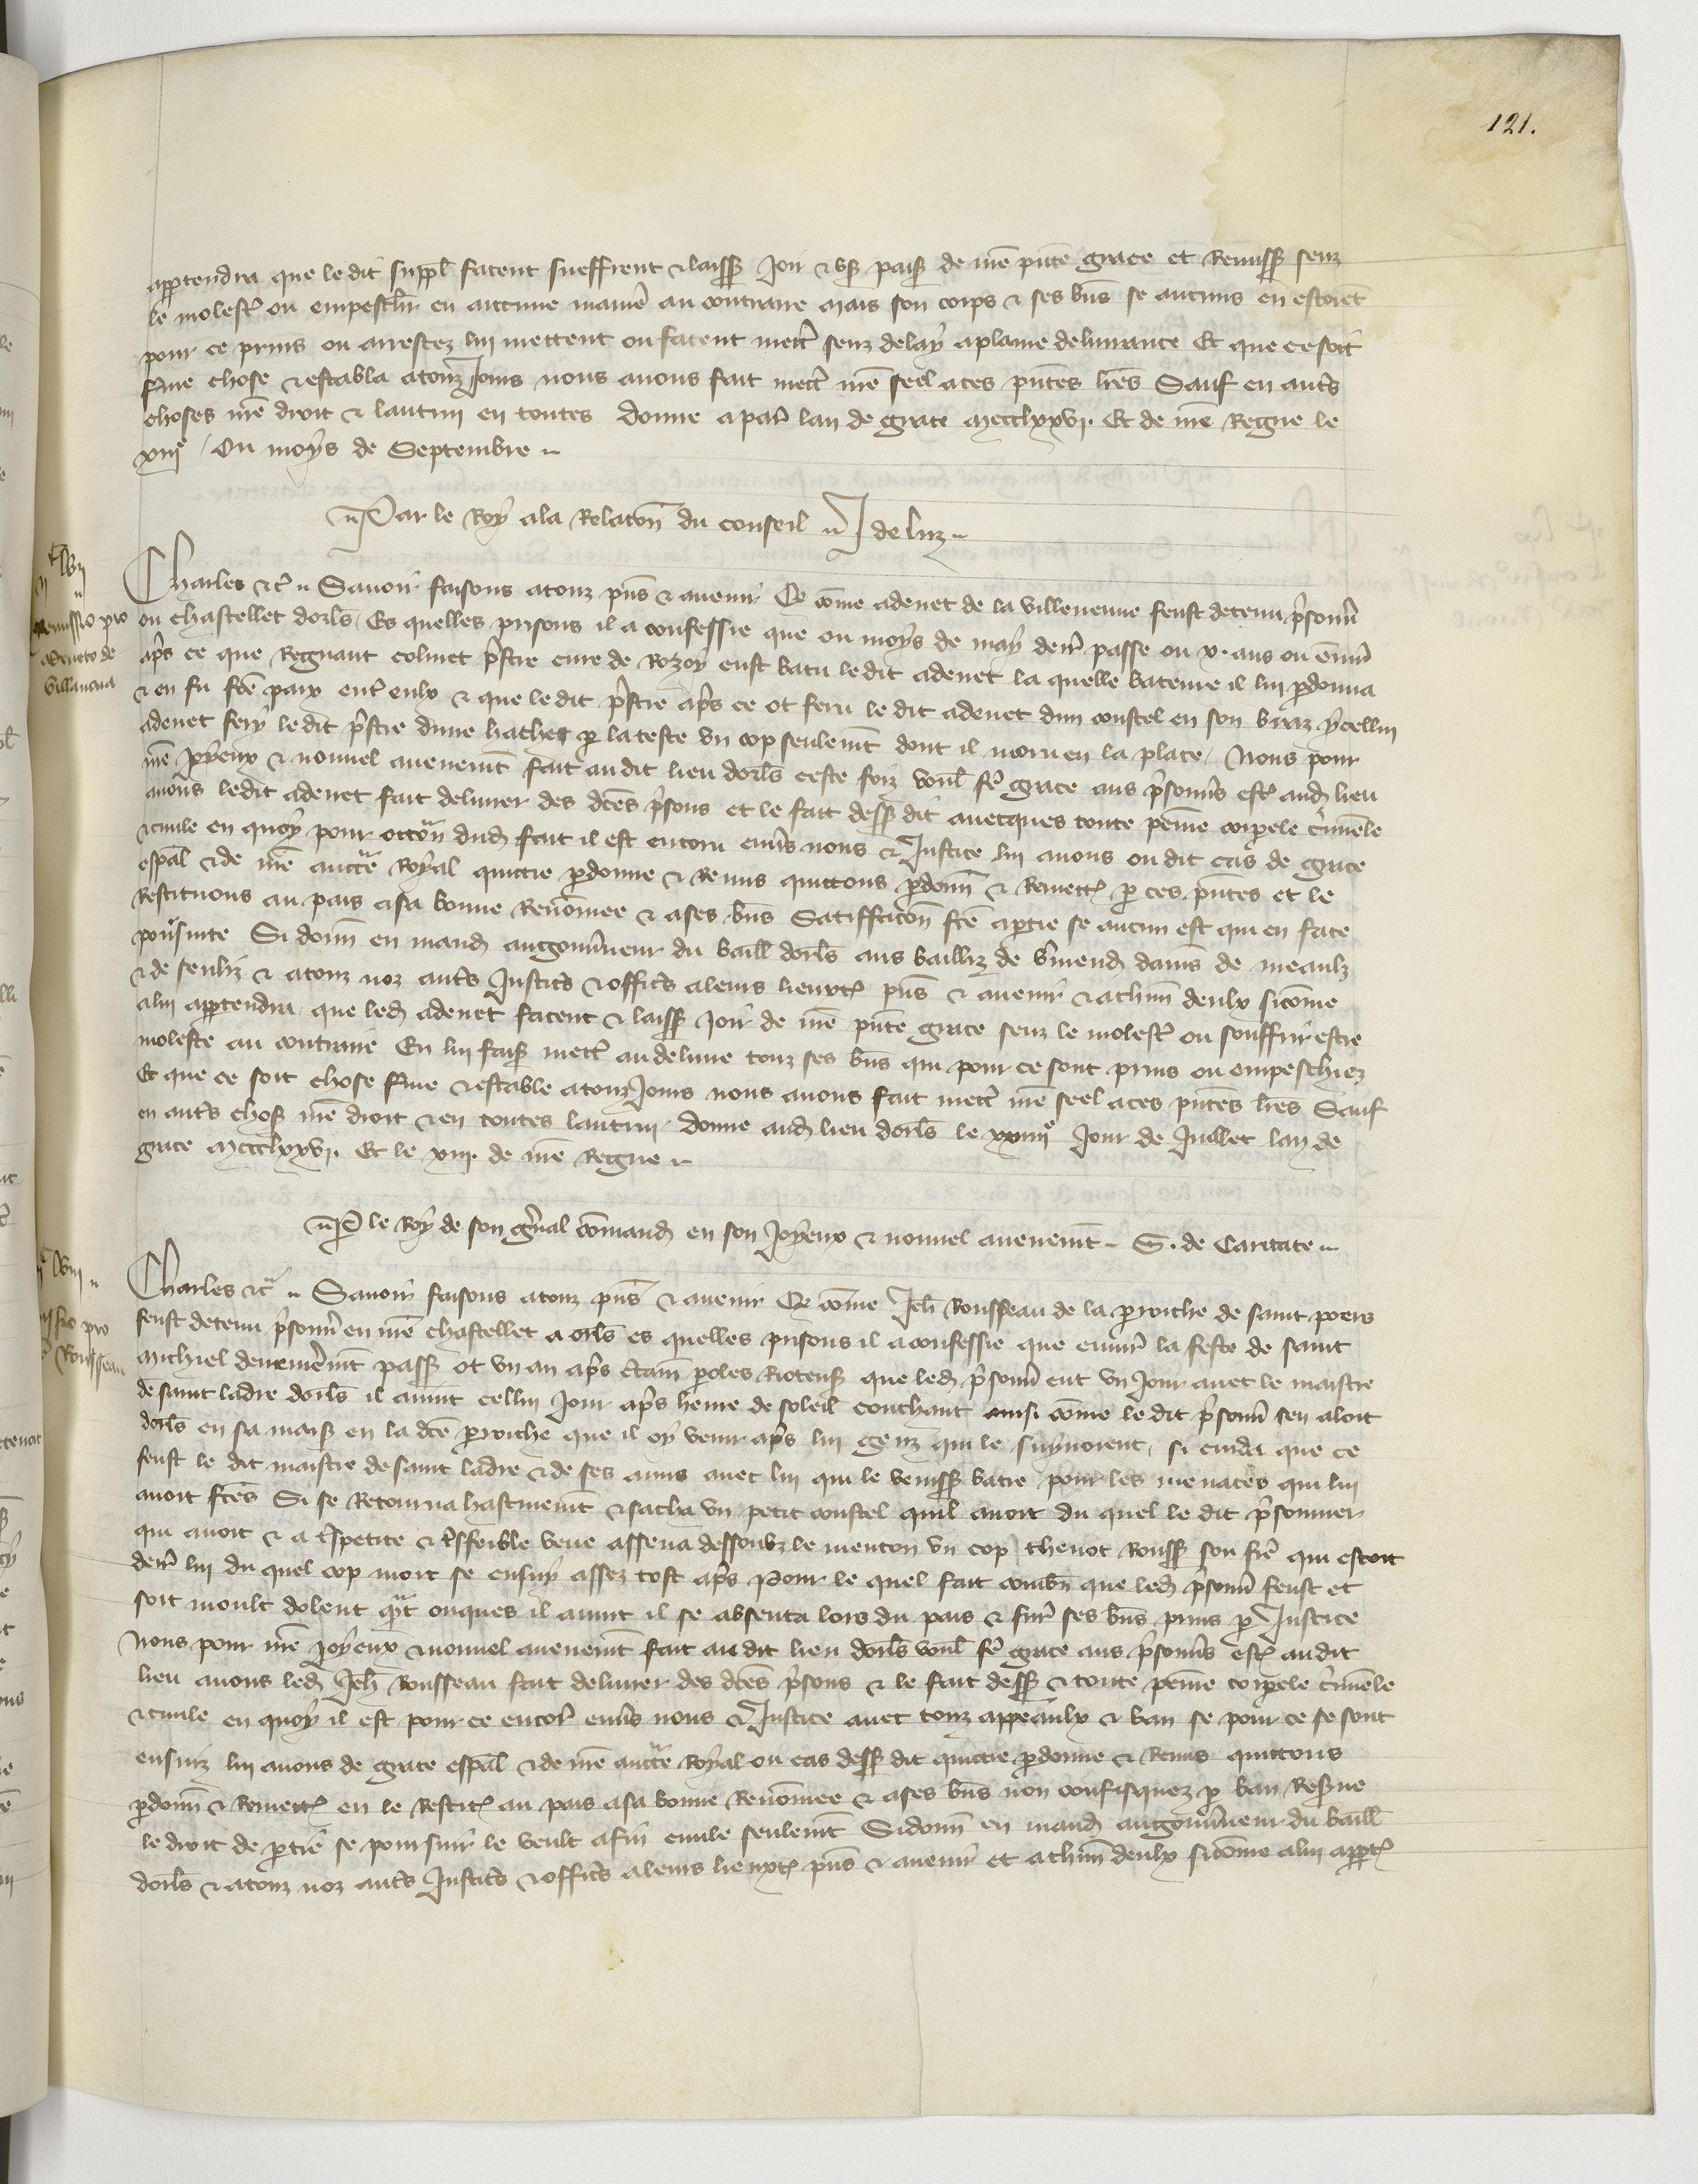 121.
appartendra que le dit suppl facent sueffrent & laissẽ joir & us paisẽ de nr̃e pñte grace et remissẽ senz
le molestẽ ou empeschr̃ en aucune manie au contraire mais son corps & ses biñs se aucuns en estoiẽt
pour ce prins ou arrestez lui mettent ou facent mett̃ senz delay a plaine delivrance Et que ce soit
ferme chose & estable a touz jours nous avons fait mett̃ nr̃e seel a ces pñtes lr̃es Sauf en autr̃s
choses nr̃e droit & lautrui en toutes donne a par̃ lan de grace mccclxxvi. Et de nr̃e Regne le
xiije ou moys de Septembre
Par le Roy a la Relacõn du conseil J de luz
Charles &c̃ Savoir faisons a touz pñs & avenir Que cõme adenet de la villeneuve feust detenu p̃sonnr̃
ou chastellet dorlr̃s Es quelles prisons il a confessie que ou moys de may denr̃ passe ou x. ans ou envir̃
apr̃s ce que Regnaut colinet p̃stre cure de Rozoy eust batu le dit adenet la quelle bateure il lui pdonna
& en fu fcẽ paix entr̃ eulx & que le dit p̃stre apr̃s ce ot feru le dit adenet dun coustel en son braz ycellui
adenet fery le dit p̃stre dune hache p la teste un cop seulemẽt dont il moru en la place Nous pour
nr̃e joyeux & nouvel avenemẽt fait au dit lieu dorlr̃s ceste foiz voul̃ fẽ grace aus p̃sonnr̃s est̃ aud lieu
avons ledit adenet fait delivrer des dc̃es p̃sons et le fait dessẽ dit avecques toute peine corpele c̃minele
& civile en quoy pour occõn dud fait il est encoru envr̃s nous & Justice lui avons ou dit cas de grace
esp̃al & de nr̃e auct̃e Royal quittie pdonne & Remis quittons pdonñ & Remett̃ p ces pñtes et le
Restituons au pais a sa bonne Renõmee & a ses biñs Satiffacõn fcẽ a ptie se aucun est qui en face
poũsuite Si donñ en mand au gouvr̃neur du baill̃ dorlr̃s aus bailliz de vr̃mend damiñs de meaulz
& de senliz & a touz noz autr̃s justic̃s & offic̃s a leurs lieuxt̃ pñs & avenir & a chun deulx si cõme
a lui appartendra que led adenet facent & laissẽ joir de nr̃e pñte grace senz le molest̃ ou souffrir estre
moleste au contraire En lui faisẽ mett̃ au delivre touz ses biñs qui pour ce sont prins ou empeschiez
Et que ce soit chose ferme & estable a touz jours nous avons fait mett̃ nr̃e seel a ces pñtes lr̃es Sauf
en autr̃s chosẽ nr̃e droit & en toutes lautrui donne aud lieu dorlr̃s le xxiiije jour de Juillet lan de
grace mccclxxvi. Et le xiij. de nr̃e Regne
P le Roy de son gñal cõmand en son joyeux & nouvel avenemẽt G. de Caritate
Charles &c̃ Savoir faisons a touz pñs & avenir Que cõme Jeh̃ Rousseau de la parroiche de saint poers
feust detenu p̃sonnr̃ en nr̃e chastellet a orlr̃s es quelles prisons il a confessie que envir̃ la feste de saint
michiel derrenierẽmt passẽ ot un an apr̃s ctaiñ paroles Riotensẽ que led p̃sonnr̃ eut un jour avec le maistre
de saint ladre dorlr̃s il avint cellui jour apr̃s heure de soleil couchant ainsi cõme le dit p̃sonnr̃ sen aloit
dorlr̃s en sa maisẽ en la dc̃e parroiche que il oy venir apr̃s lui genz qui le suyvoient si cuida que ce
feust le dit maistre de saint ladre & de ses amis avec lui qui le venissẽ batre pour les menaces qui lui
avoit fcẽs Si se Retourna hastivemẽt & sacha un petit coustel quil avoit du quel le dit p̃sonnier
qui avoit & a t̃spetite & t̃sfeible veue assena dessoubz le menton un cop thenot Roussẽ son frẽ qui estoit
denr̃ lui du quel cop mort se ensuy assez tost apr̃s Pour le quel fait combñ que led p̃sonnr̃ feust et
soit moult dolent quãt onques il avint il se absenta lors du pais & furr̃ ses biñs prins p Justice
Nous pour nr̃e joyeux & nouvel avenemẽt fait au dit lieu dorlr̃s voul̃ fẽ grace aus p̃sonnr̃s est̃ au dit
lieu avons led Jeh̃ Rousseau fait delivrer des dc̃es p̃sons & le fait dessẽ & toute peine corpele c̃minele
& civile en quoy il est pour ce encor̃ envr̃s nous & Justice avec touz appeaulx & ban se pour ce se sont
ensuiz lui avons de grace esp̃al & de nr̃e auct̃e Royal ou cas dessẽ dit quittie pdonne & Remis quittons
pdonñ & Remett̃ en le Restit̃ au pais a sa bonne Renõmee & a ses biñs non confisquez p ban Resr̃ve
le droit de ptie se poursuir̃ le veult a fin civile seulemẽt Si donñ en mand au gouvr̃neur du baill̃
dorlr̃s & a touz noz autr̃s justic̃s & offic̃s a leurs lieuxt̃ pñs & avenir et a chun deulx si cõme a lui appart̃
Remissio pro
Adeneto de
Villanova
pro
Rousseau